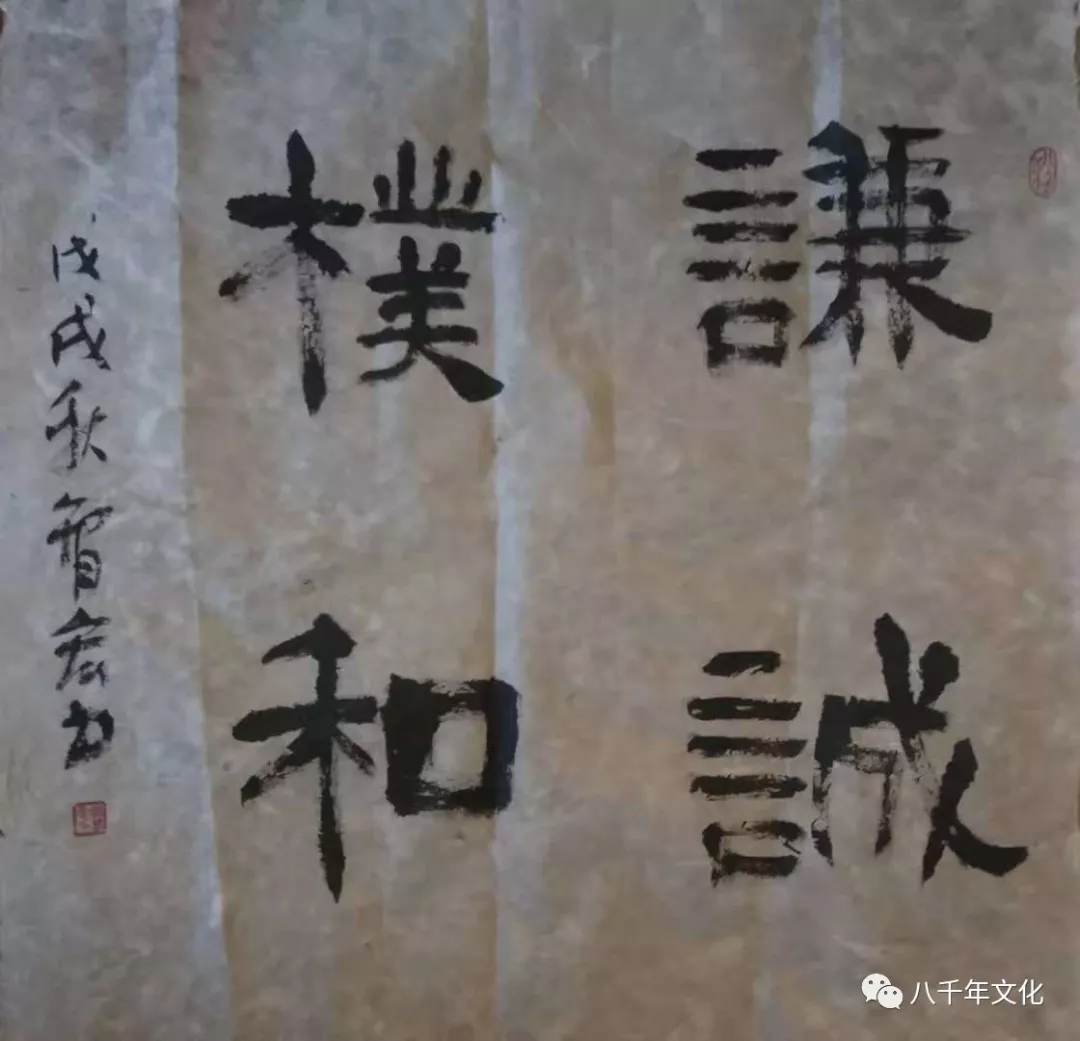 謙誠
樸和
戊戌秋曾宏书
八千年文化